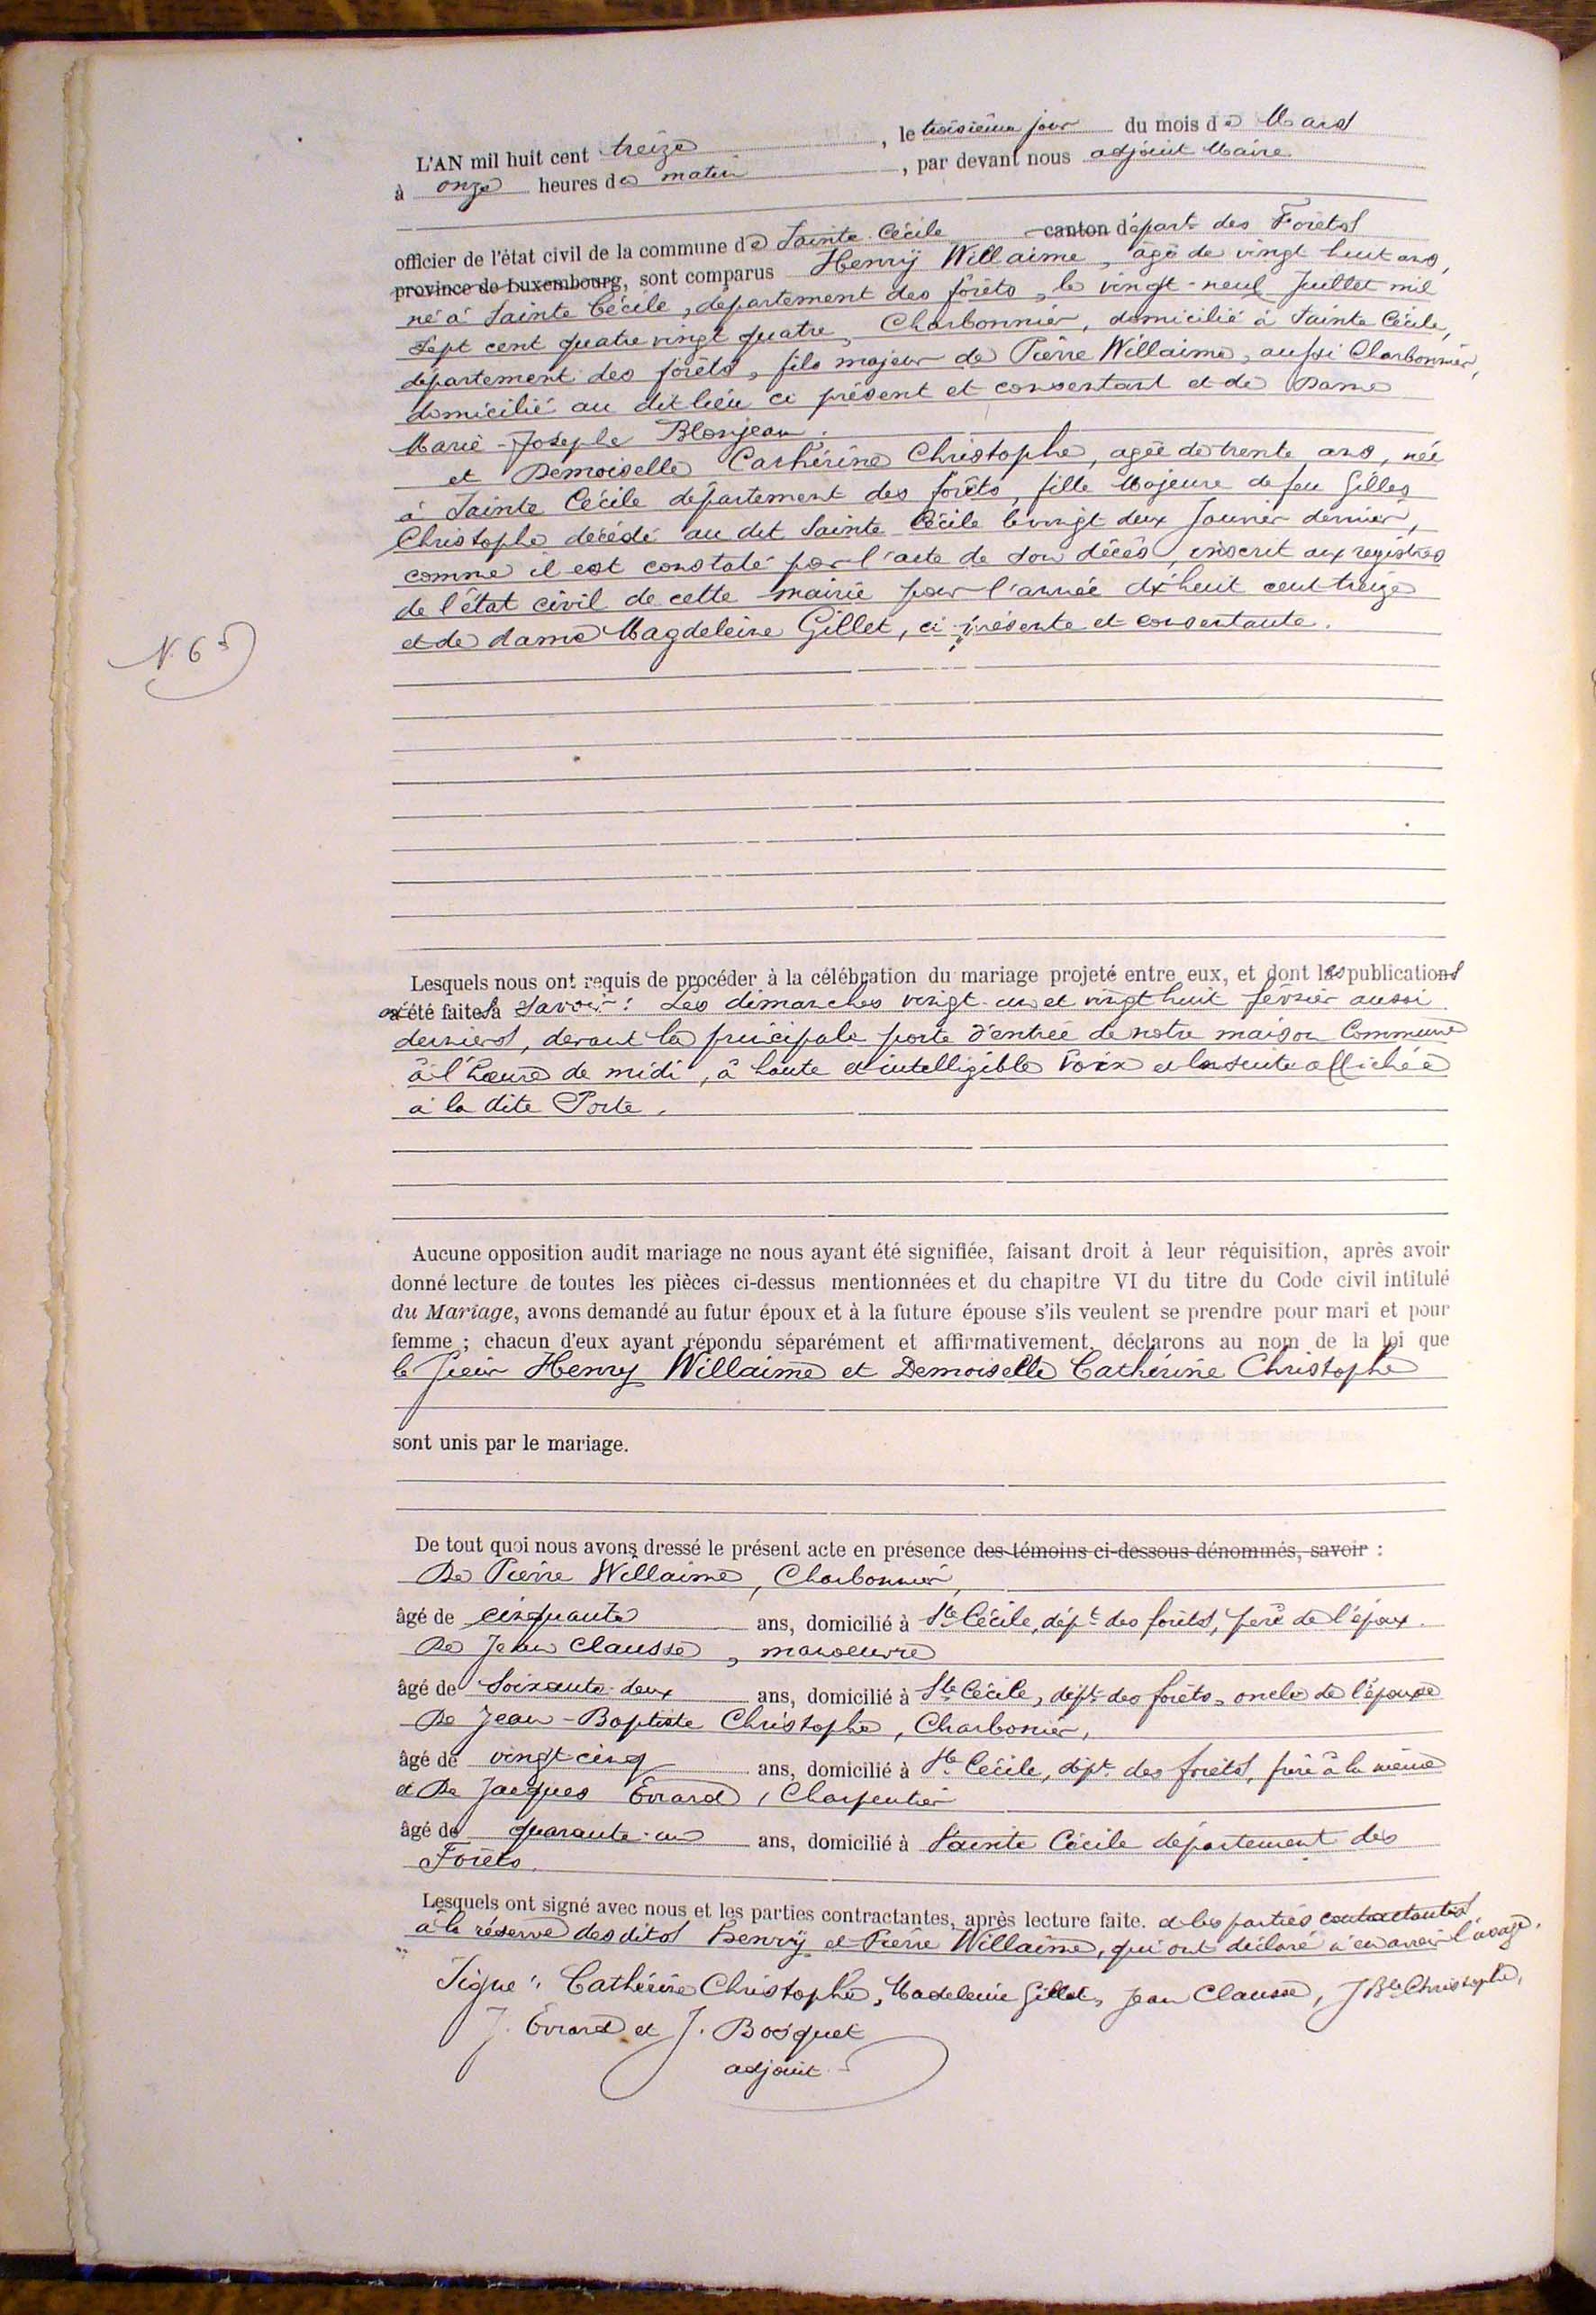 L'AN mil huit cent treize, le troisième jour du mois de Mars
à onze heures de matin, par devant nous adjoint Maire
officier de l'état civil de la commune de Sainte Cécile canton départ. des Forêts
province de Luxembourg, sont comparus Henrÿ Willaime, âgé de vingt huit ans,
né à Sainte Cécile, département des forêts, le vingt-neuf Juillet mil
sept cent quatre vingt quatre, Charbonnier, domicilié à Sainte Cécile,
département des forêts, fils majeur de Pierre Willaime, aussi Charbonnier,
domicilié au dit lieu ci présent et consentant et de Dame
Marie-Josephe Blonjean.
et Demoiselle Cathérine Christophe, agée de trente ans, née
à Sainte Cécile département des forêts, fille Majeure de feu Gilles
Christophe décédé au dit Sainte Cécile le vingt deux Janvier dernier,
comme il est constaté par l'acte de son décès, inscrit aux registres
de l'état civil de cette mairie pour l'année dix huit cent treize
et de dame Magdeleine Gillet, ci présente et consentante.
N. 6
Lesquels nous ont requis de procéder à la célébration du mariage projeté entre eux, et dont les publications
ont été faites à savoir: Les dimanches vingt-un et vingt huit février aussi
derniers, devant la principale porte d'entrée de notre maison Commune
à l'heure de midi, à haute et intelligible voix et ensuite affichée
à la dite Porte.
Aucune opposition audit mariage ne nous ayant été signifiée, faisant droit à leur réquisition, après avoir
donné lecture de toutes les pièces ci-dessus mentionnées et du chapitre VI du titre du Code civil intitulé
du Mariage, avons demandé au futur époux et à la future épouse s'ils veulent se prendre pour mari et pour
femme ; chacun d'eux ayant répondu séparément et affirmativement, déclarons au nom de la loi que
le Sieur Henry Willaime et Demoiselle Cathérine Christophe
sont unis par le mariage.
De tout quoi nous avons dressé le présent acte en présence des témoins ci-dessous dénommés, savoir :
De Pierre Willaime, Charbonnier,
âgé de cinquante ans, domicilié à Ste Cécile, dépt des forêts, père de l'époux.
De Jean Clausse, manoeuvre
âgé de Soixante-deux ans, domicilié à Ste Cécile, dépt des forêts, oncle de l'épouse
De Jean-Baptiste Christophe, Charbonier,
âgé de vingt-cinq ans, domicilié à Ste Cécile, dépt des forêts, frère à la même
et De Jacques Evrard, Charpentier
âgé de quarante-un ans, domicilié à Sainte Cécile département des
Forêts.
Lesquels ont signé avec nous et les parties contractantes, après lecture faite. et les parties contractantes
à la réserve des dits Henrÿ et Pierre Willaime, qui ont déclaré n'en avoir l'usage.
Signé: Cathérine Christophe, Madeleine Gillet, Jean Clausse, J Bte Christophe,
J. Evrard et J. Bosquet
adjoint